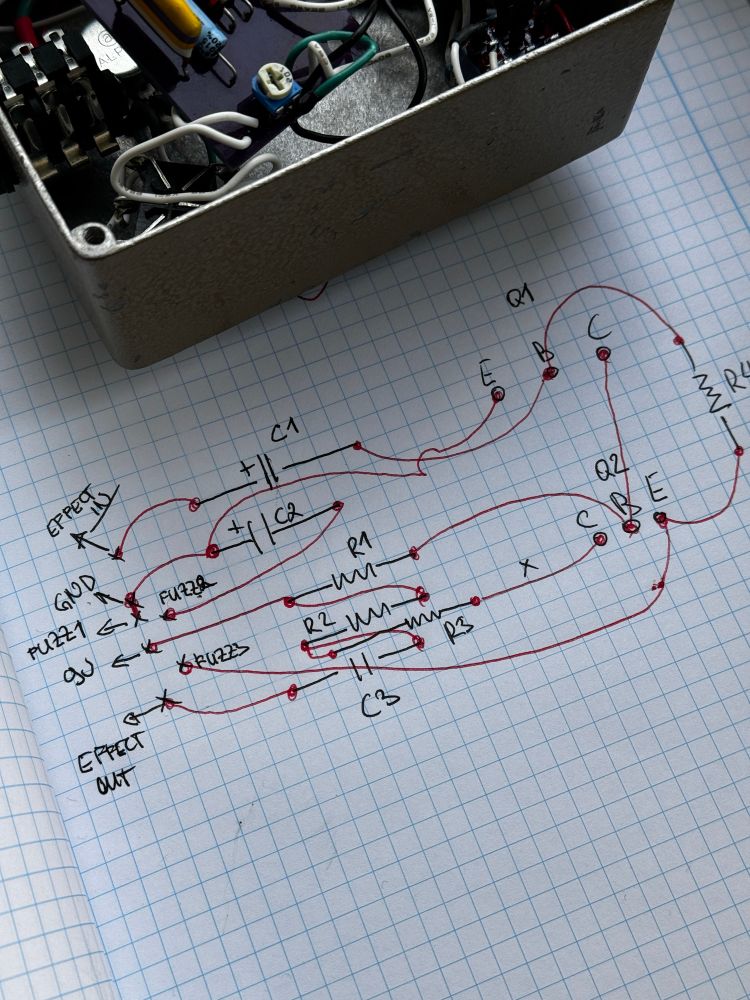 ALP
Q1
C
B
E
R4
C1
+
EFFECT
IN
Q2
B
E
C
+
C2
R1
GND
FUZZ2
FUZZ1
R2
R3
9V
FUZZ3
X
C3
EFFECT
OUT